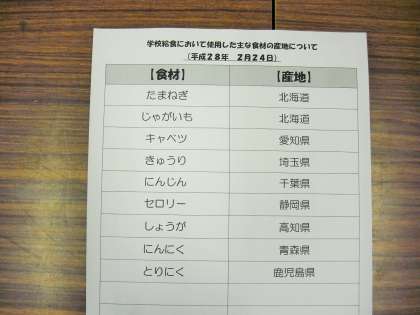 学校給食において使用した主な食材の産地について
(平成28年 2月24日)
【食材】 【産地】
たまねぎ 北海道
じゃがいも 北海道
キャベツ 愛知県
きゅうり 埼玉県
にんじん 千葉県
セロリー 静岡県
しょうが 高知県
にんにく 青森県
とりにく 鹿児島県